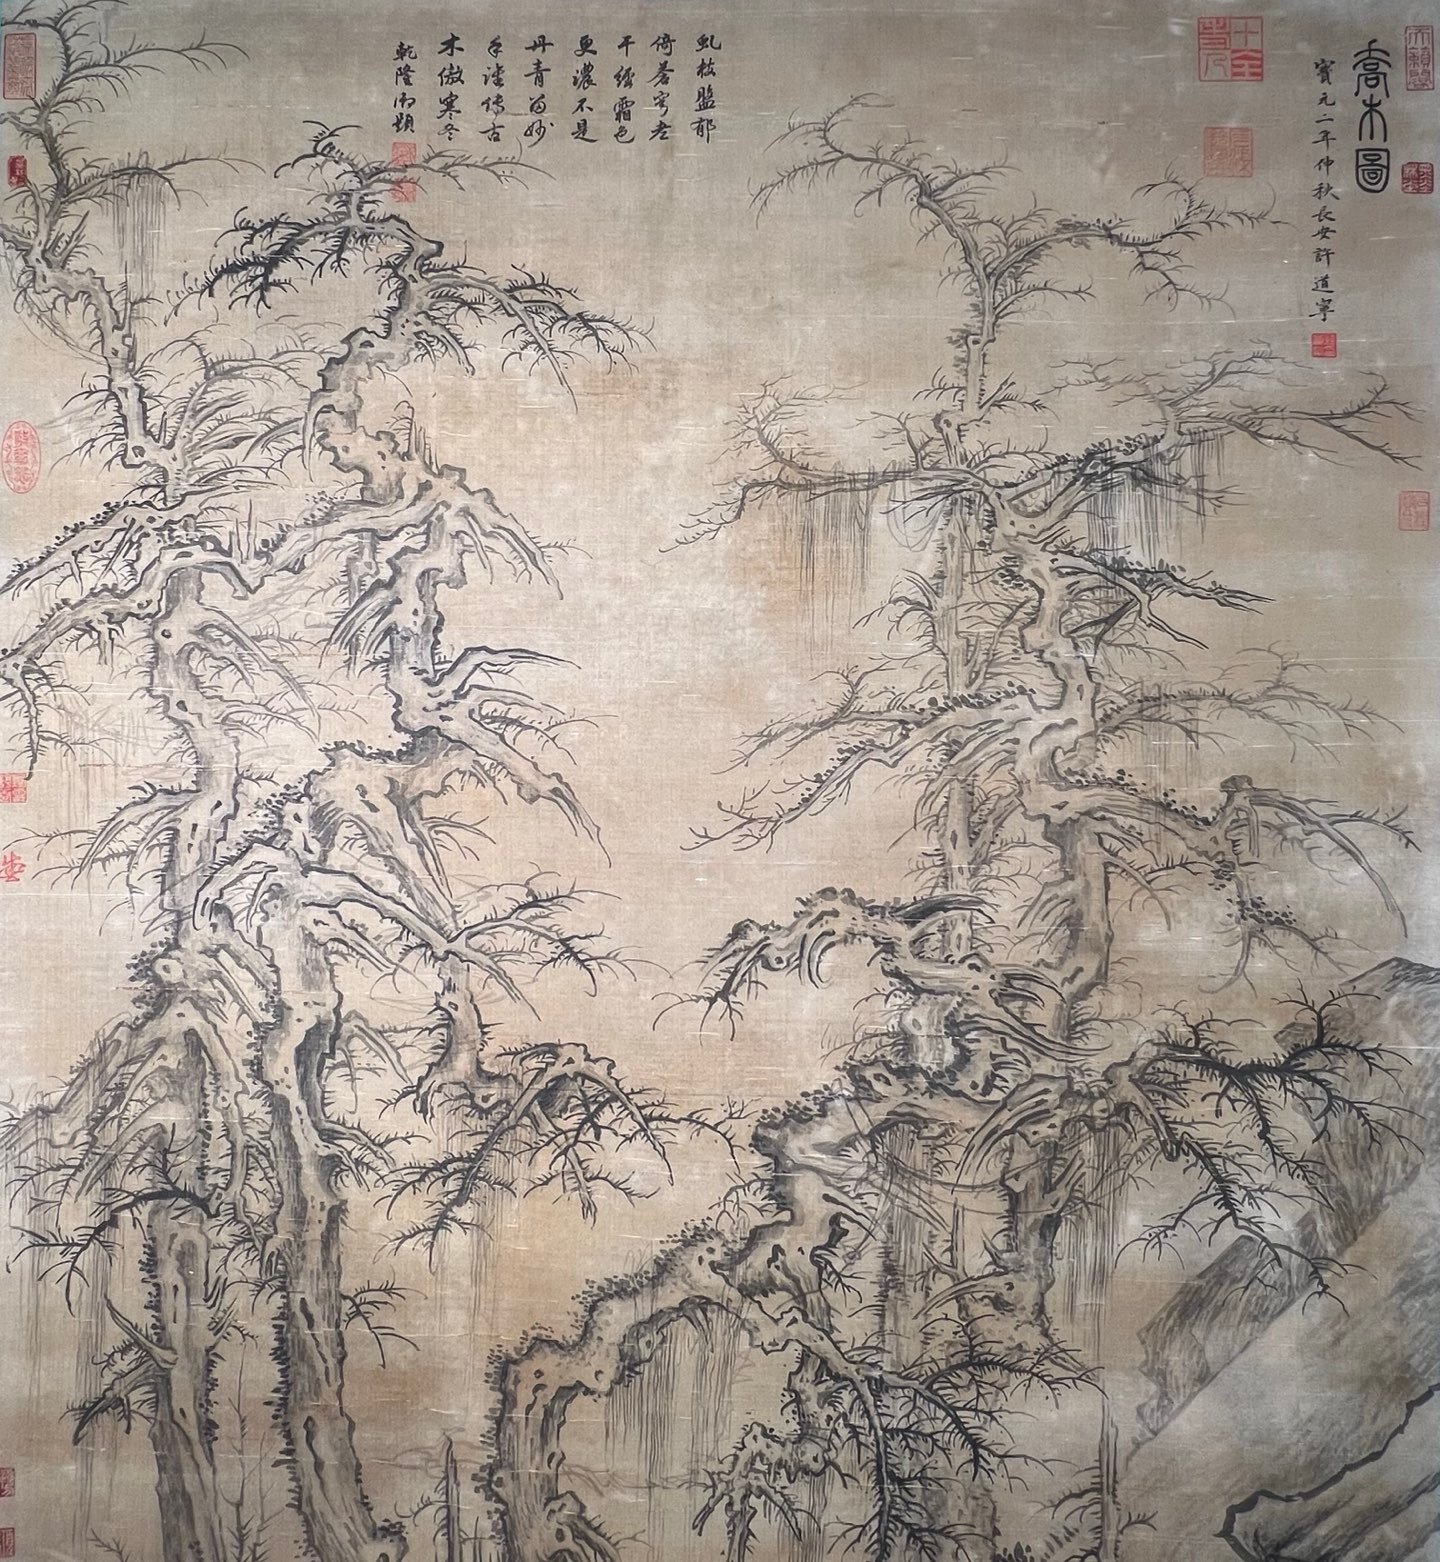 喬木圖
寶元二年仲秋長安許道寧
虬枝盤郁
倚蒼穹老
干經霜色
更濃不是
丹青留妙
手誰傳古
木傲寒冬
乾隆御題